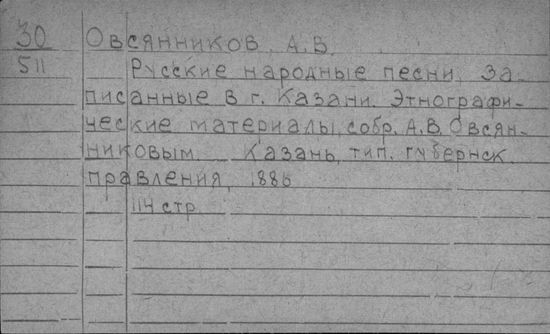 30 Овсянников, А.В.
511 Русские народные песни, за-
писанные в г. Казани. Этнографи-
ческие материалы, собр. А.В. Овсян-
никовым. Казань, тип. губернск.
правления, 1886
114 стр.